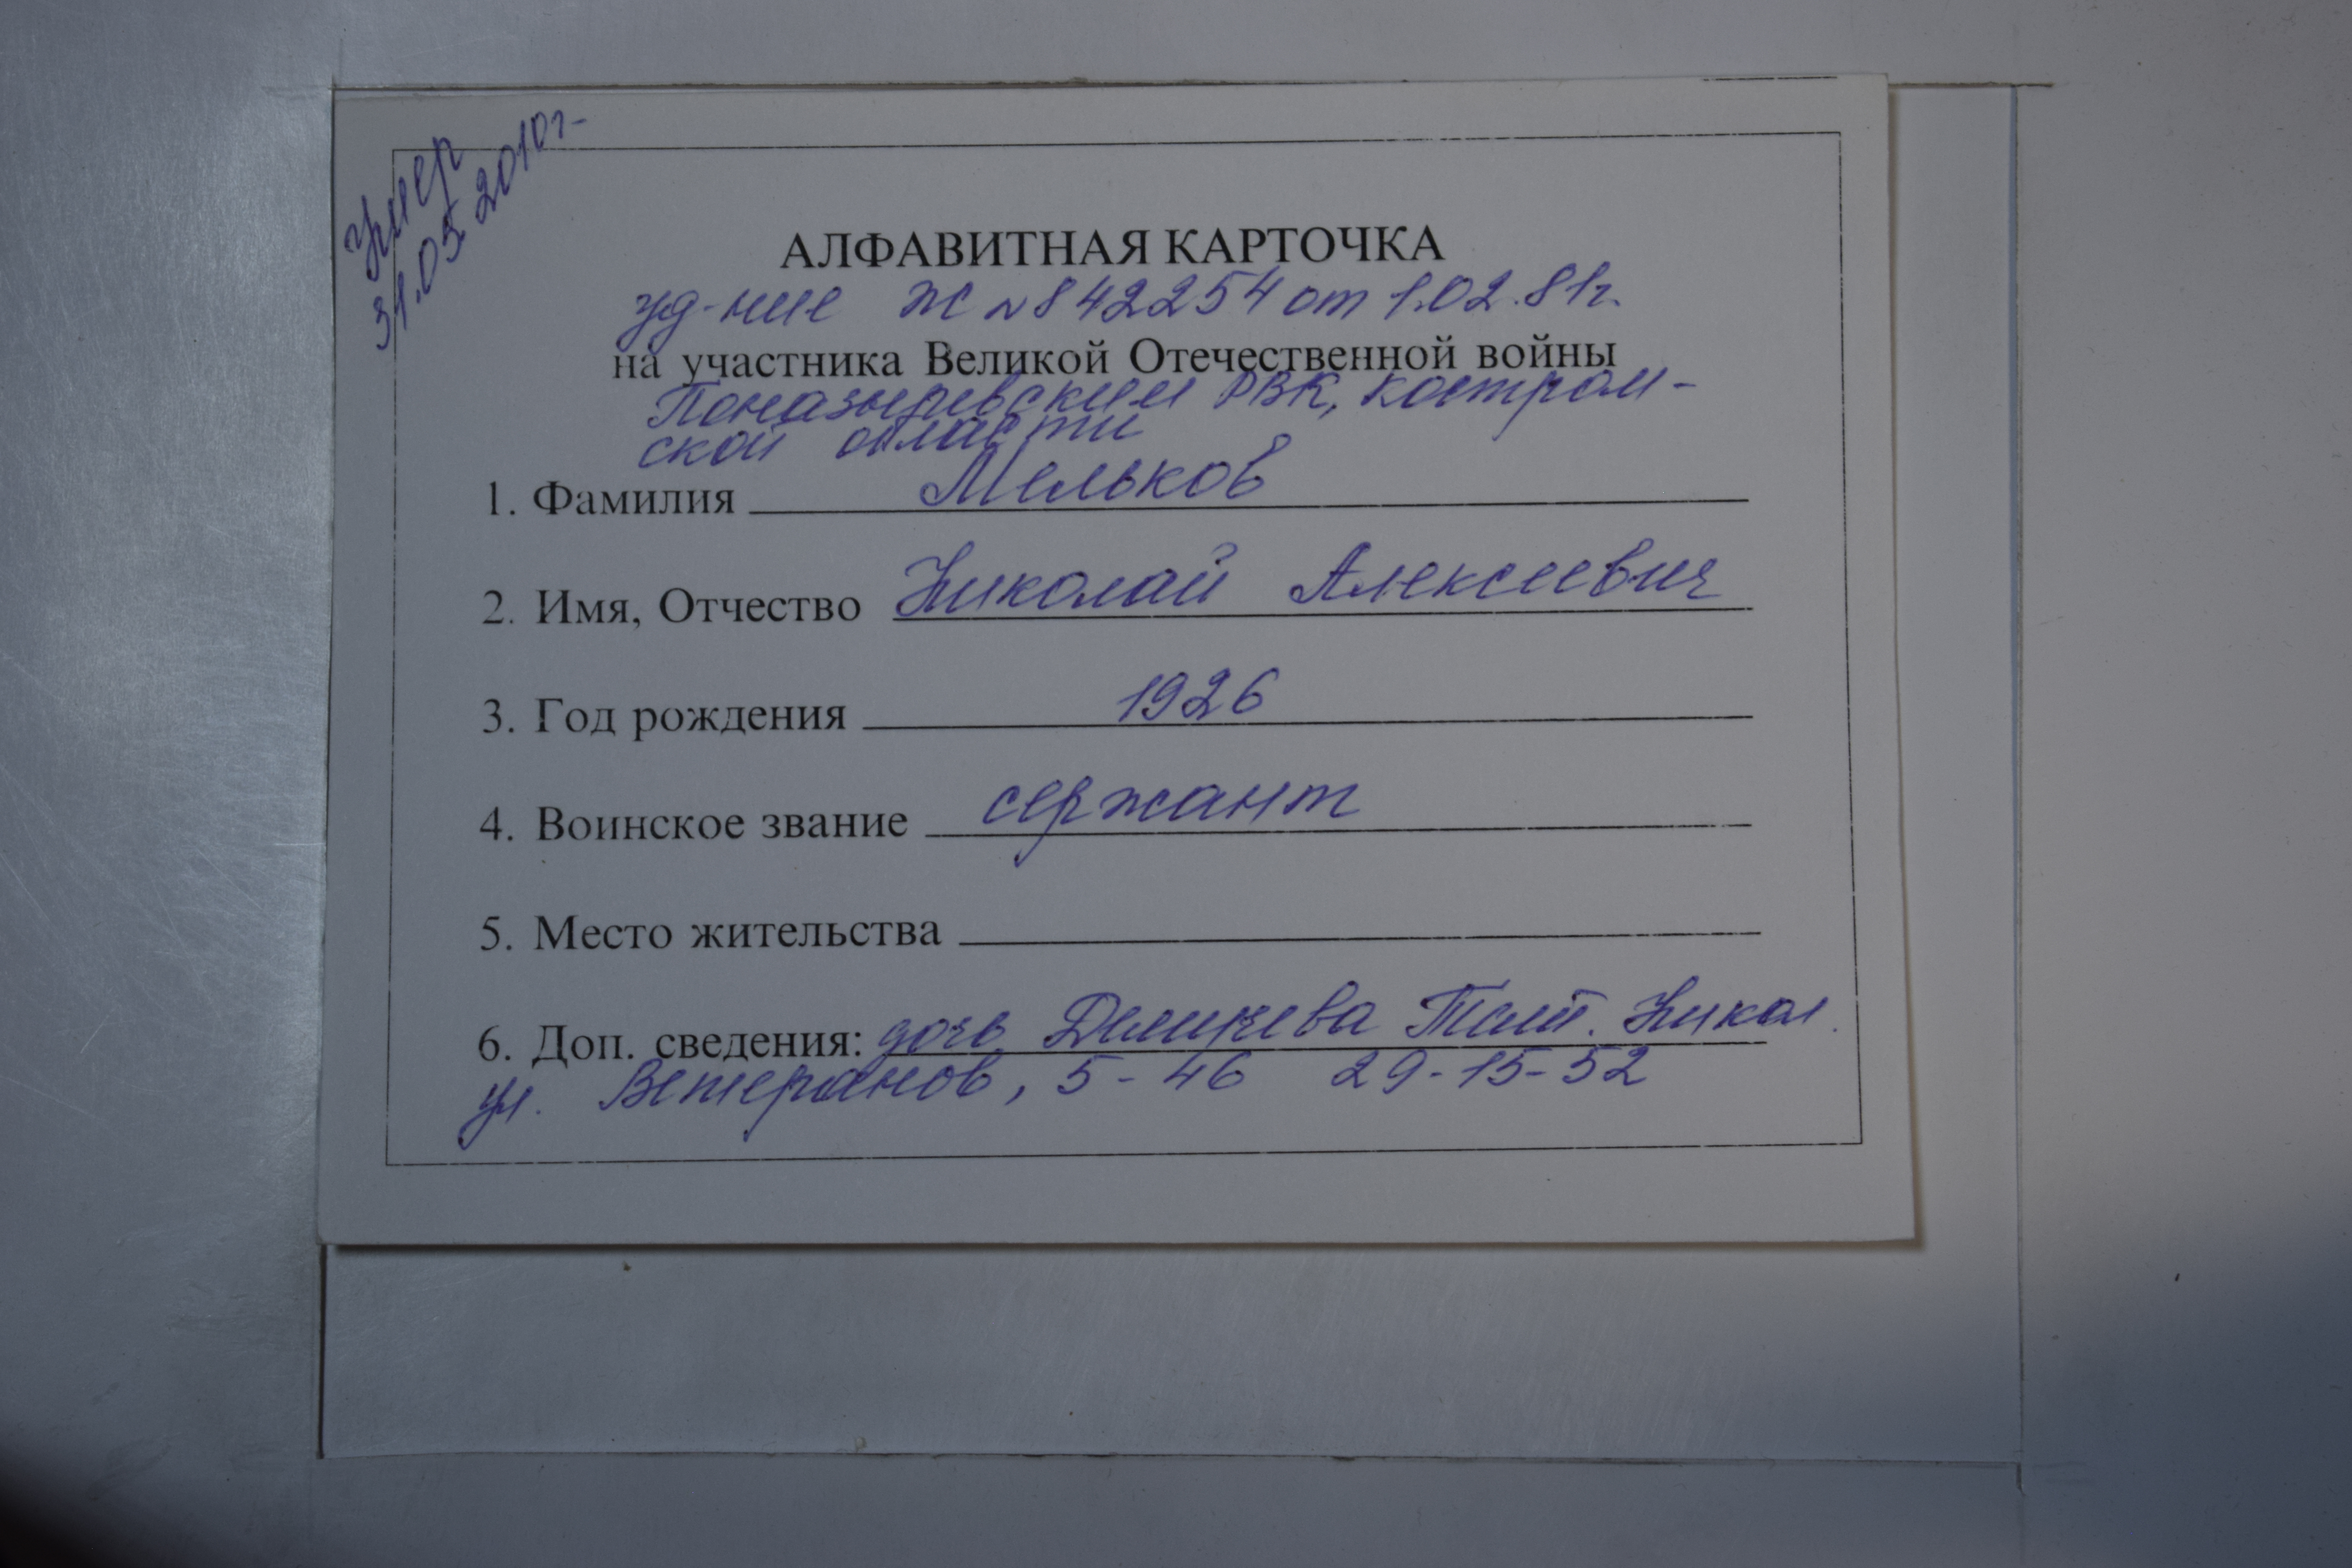 Умер
31.05.2010г-
АЛФАВИТНАЯ КАРТОЧКА
уд-ние Ж №842254 от 1.02.81г.
на участника Великой Отечественной войны
Поназыревским РВК, костром-
ской области
1. Фамилия Мельков
2. Имя, Отчество Николай Алексеевич
3. Год рождения 1926
4. Воинское звание сержант
5. Место жительства
6. Доп. сведения: дочь Никол.
ул. Ветеранов, 5-46 29-15-52